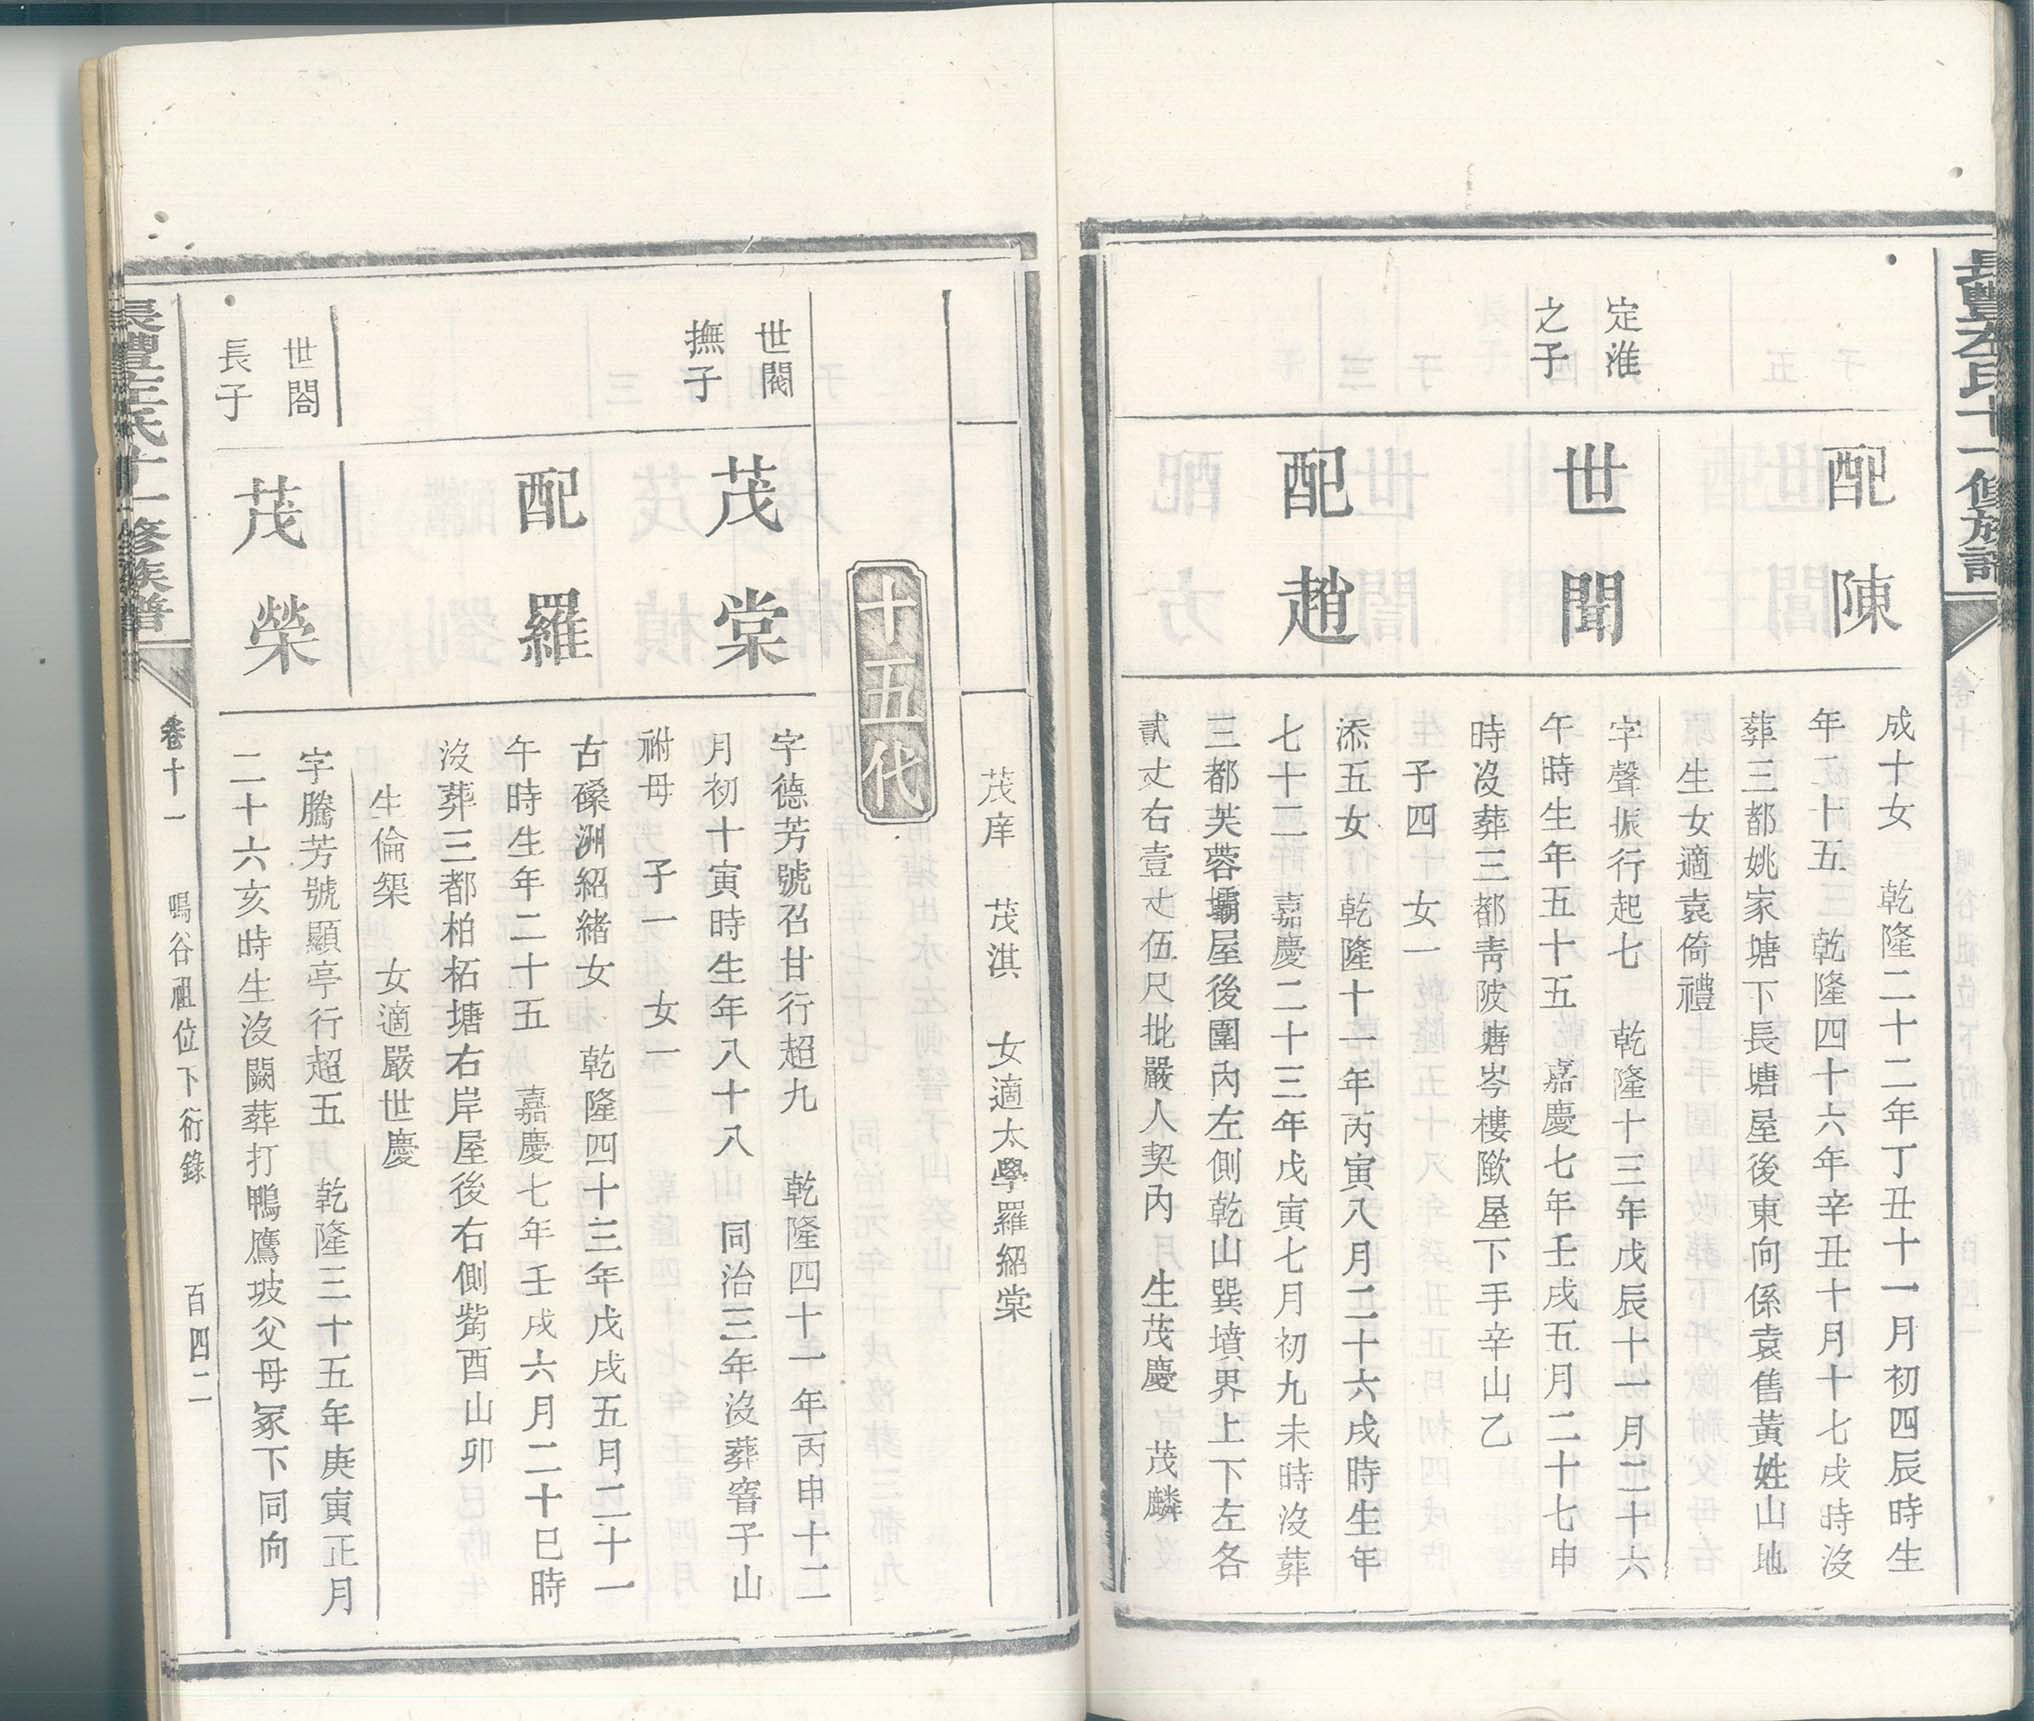 長豐左氏十一修族譜
配陳
成十女 乾隆二十二年丁丑十一月初四辰時生
年二十五 乾隆四十六年辛丑十月十七戌時沒
葬三都姚家塘下長塘屋後東向係袁售黃姓山地
生女適袁倚禮
定淮
之子
世聞
字聲振行起七 乾隆十三年戊辰十一月二十六
午時生年五十五 嘉慶七年壬戌五月二十七申
時沒葬三都青陂塘岑樓歐屋下手辛山乙
子四 女一
配趙
添五女 乾隆十一年丙寅八月二十六戌時生年
七十三 嘉慶二十三年戊寅七月初九未時沒葬
三都芙蓉壩屋後圍內左側乾山巽墳界上下左各
貳丈右壹丈伍尺批嚴人契內 生茂慶 茂麟
茂庠 茂淇 女適太學羅紹棠
十五代
世閥
撫子
茂棠
字德芳號召甘行超九 乾隆四十一年丙申十二
月初十寅時生年八十八 同治三年沒葬窨子山
祔母 子一 女一
配羅
古磉洲紹緒女 乾隆四十三年戊戌五月二十一
午時生年二十五 嘉慶七年壬戌六月二十巳時
沒葬三都柏柘塘右岸屋後右側觜酉山卯
生倫榘 女適嚴世慶
世閤
長子
茂榮
字騰芳號顯亭行超五 乾隆三十五年庚寅正月
二十六亥時生沒闕葬打鴨鷹坡父母冢下同向
長豐左氏十一修族譜
卷十一 鳴谷祖位下衍錄 百四二